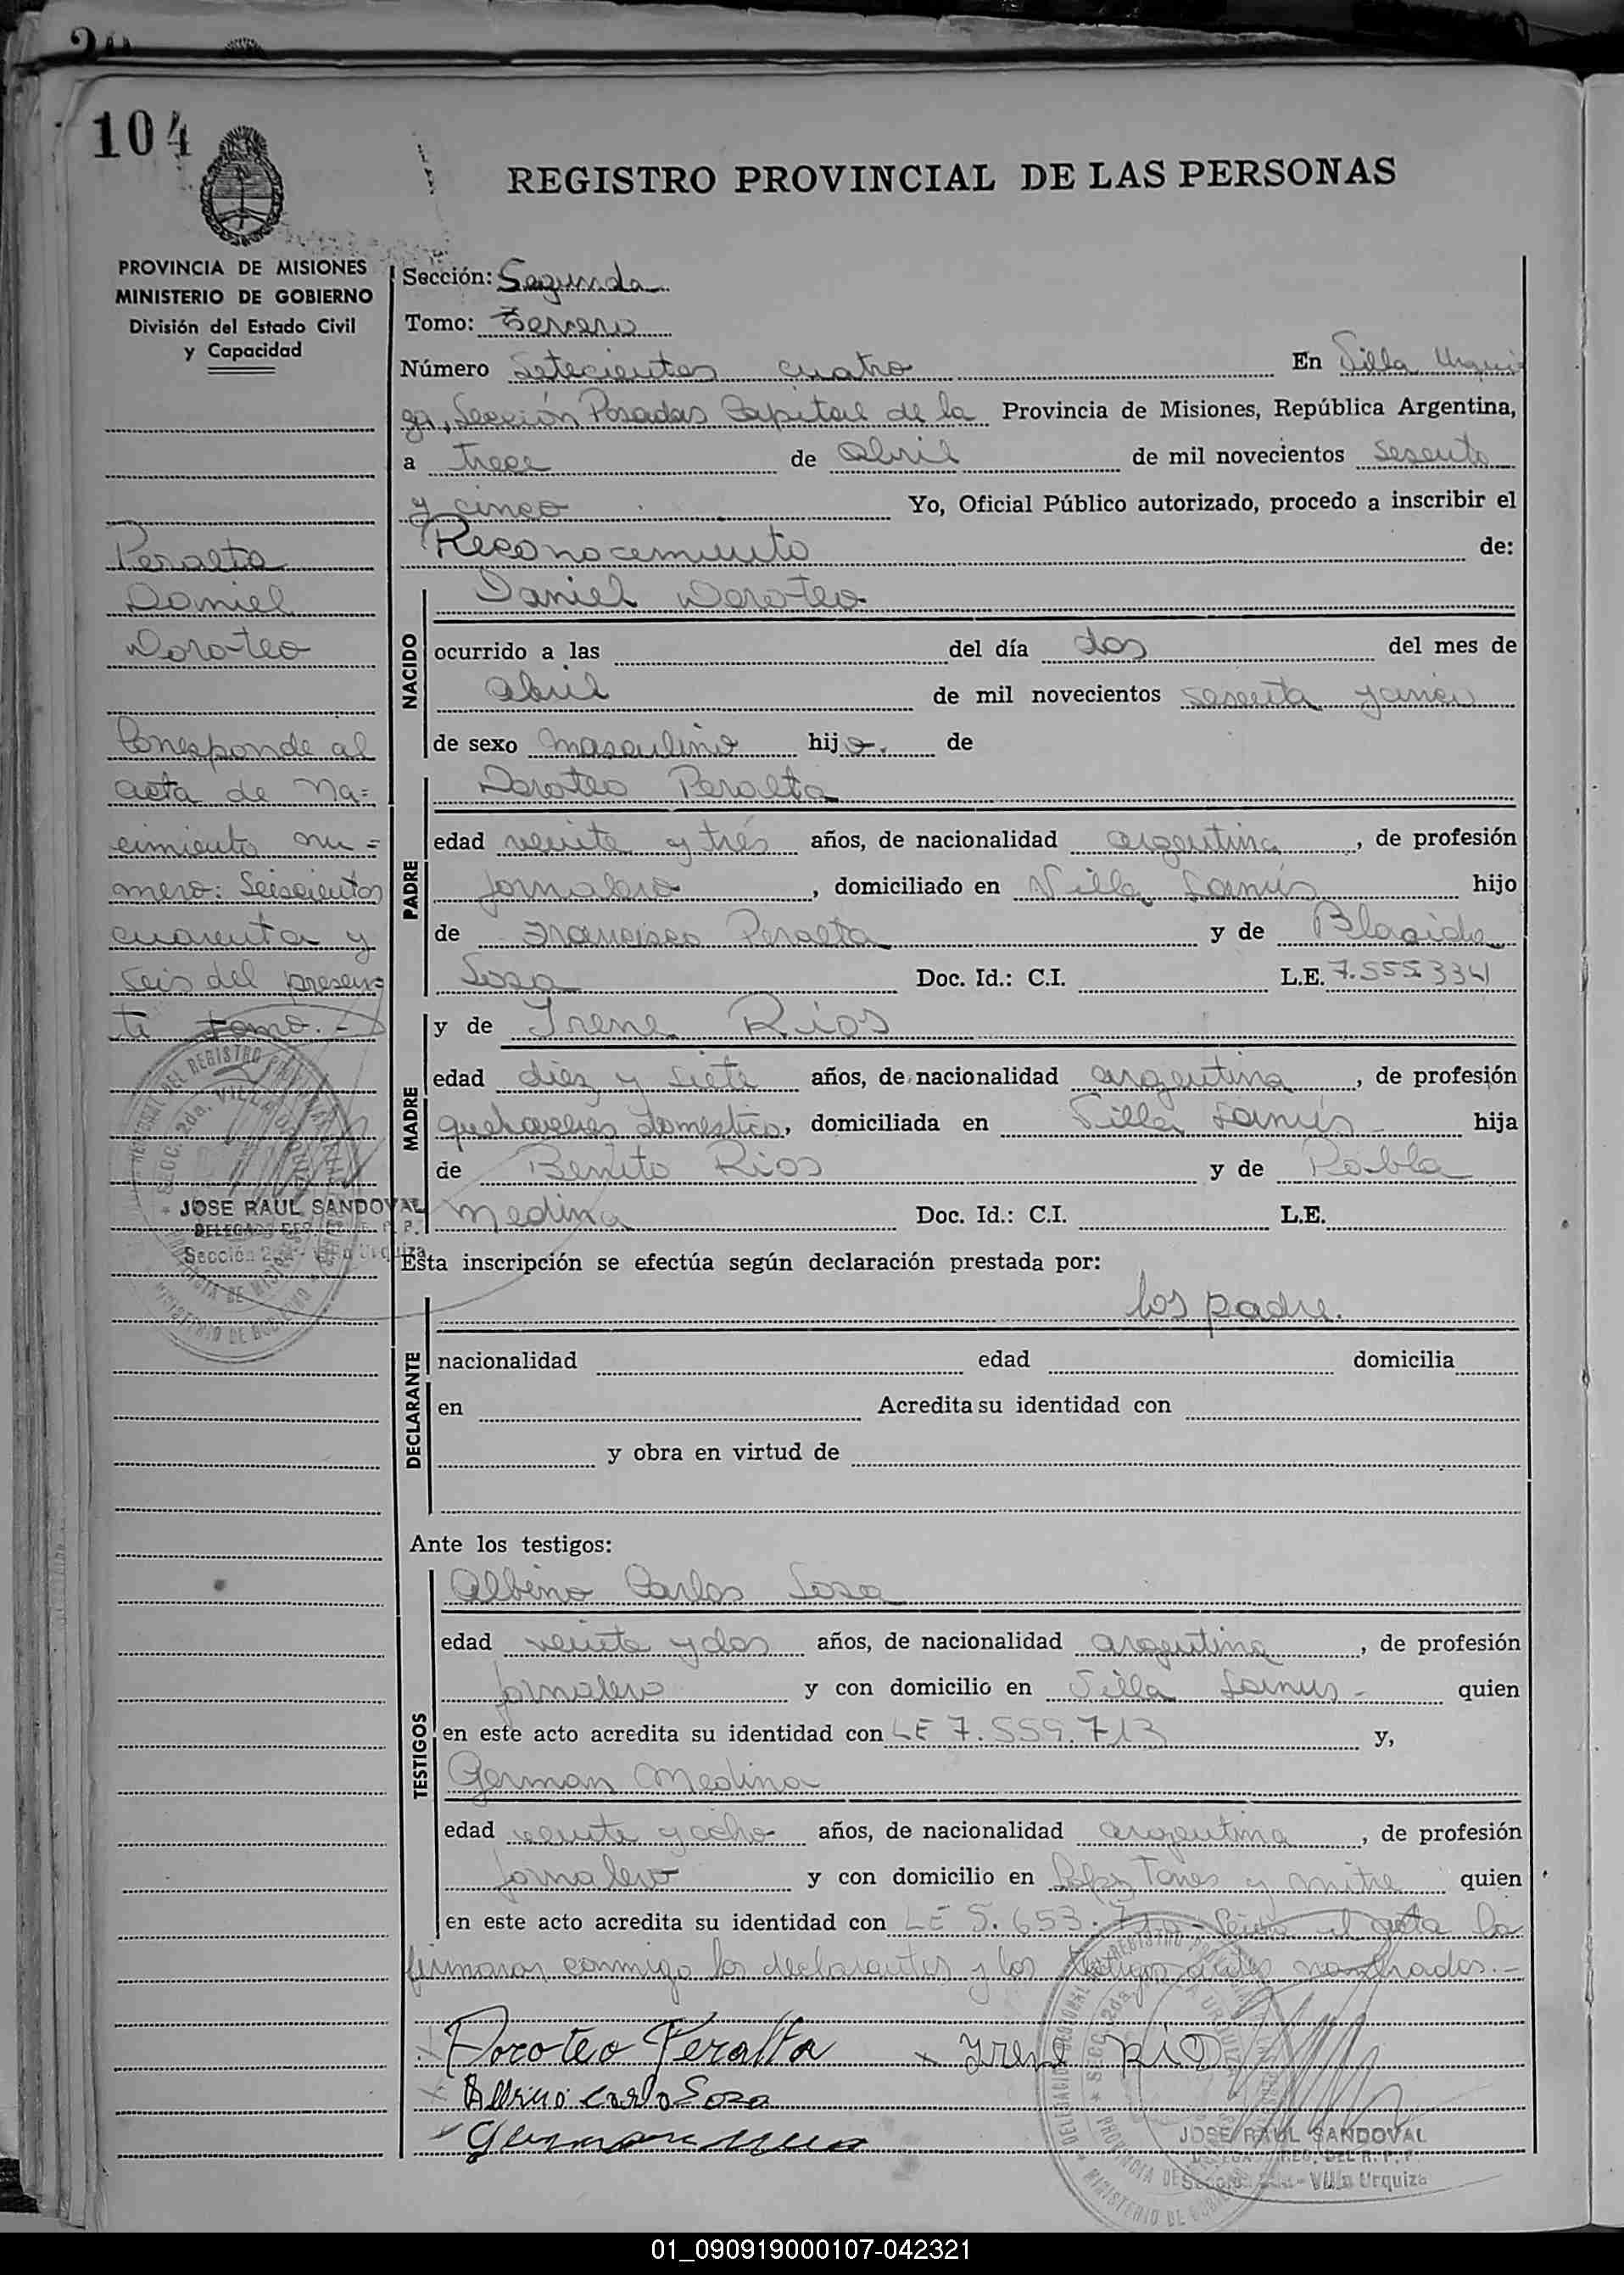 104
REGISTRO PROVINCIAL DE LAS PERSONAS
PROVINCIA DE MISIONES
MINISTERIO DE GOBIERNO
División del Estado Civil
y Capacidad
Peralta
Daniel
Doroteo
Corresponde al
acta de na=
cimiento nu=
mero: Seiscientos
cuarenta y
seis del presen=
te tomo.-
JOSE RAUL SANDOVAL
Sección: Segunda
Tomo: Tercero
Número Setecientos cuatro En Villa Urqui
za, Sección Posadas Capital de la Provincia de Misiones, República Argentina,
a trece de abril de mil novecientos sesenta
y cinco Yo, Oficial Público autorizado, procedo a inscribir el
Reconocimiento de:
NACIDO
Daniel Doroteo
ocurrido a las del día dos del mes de
abril de mil novecientos sesenta y cinco
de sexo masculino hijo. de
PADRE
Doroteo Peralta
edad veinte y tres años, de nacionalidad argentina, de profesión
jornalero, domiciliado en Villa Lanús hijo
de Francisco Peralta y de Placida
Sosa Doc. Id.: C.I. L.E. 7.555.334
MADRE
y de Irene Rios
edad diez y siete años, de nacionalidad argentina, de profesión
quehaceres domestico, domiciliada en Villa Lanús- hija
de Benito Rios y de Pabla
Medina Doc. Id.: C.I. L.E.
Esta inscripción se efectúa según declaración prestada por:
DECLARANTE
los padre.
nacionalidad edad domicilia
en Acredita su identidad con
y obra en virtud de
Ante los testigos:
TESTIGOS
Albino Carlos Sosa
edad veinte y dos años, de nacionalidad argentina, de profesión
jornalero y con domicilio en Villa Lanus- quien
en este acto acredita su identidad con LE 7.559.713 y,
German Medina
edad veinte y ocho años, de nacionalidad argentina, de profesión
jornalero y con domicilio en Torres y Mitre quien
en este acto acredita su identidad con LE 5.653. el acta la
firmaron conmigo los declarantes y los testigos antes nombrados.-
x Doroteo Peralta x Irene Rio
x Albino Carlo Sosa
JOSE RAUL SANDOVAL
Villa Urquiza
01_090919000107-042321